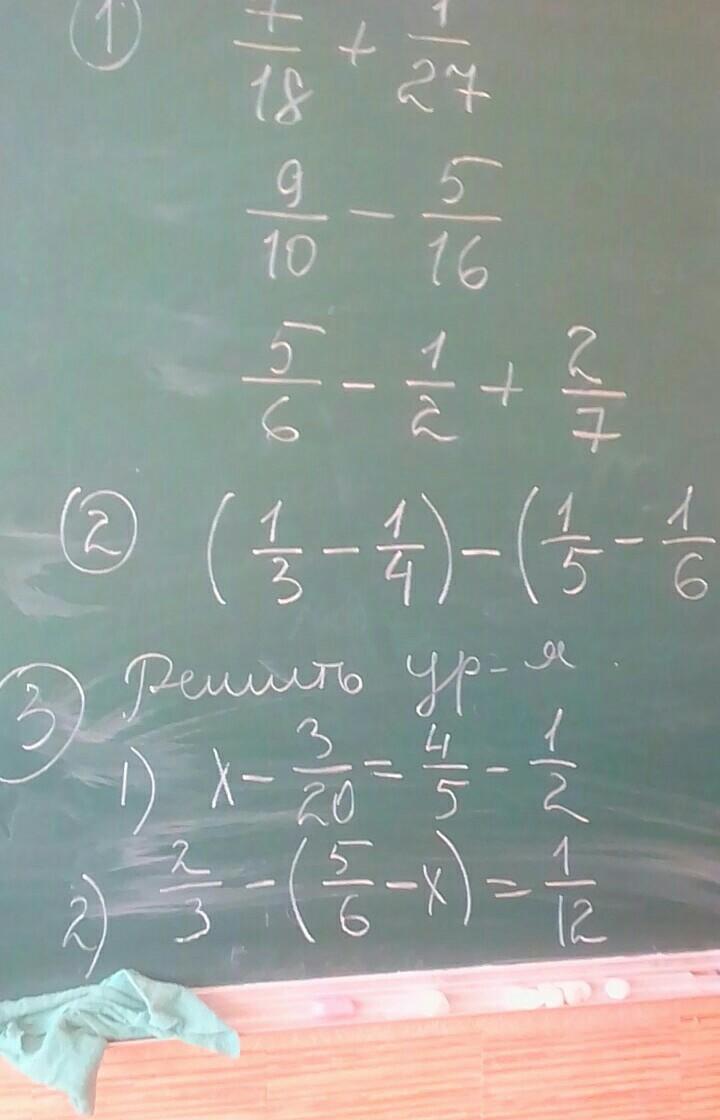 ① 7/18 + 1/27
9/10 - 5/16
5/6 - 1/2 + 2/7
② (1/3 - 1/4) - (1/5 - 1/6
③ Решить ур-я
1) x - 3/20 = 4/5 - 1/2
2) 2/3 - (5/6 - x) = 1/12